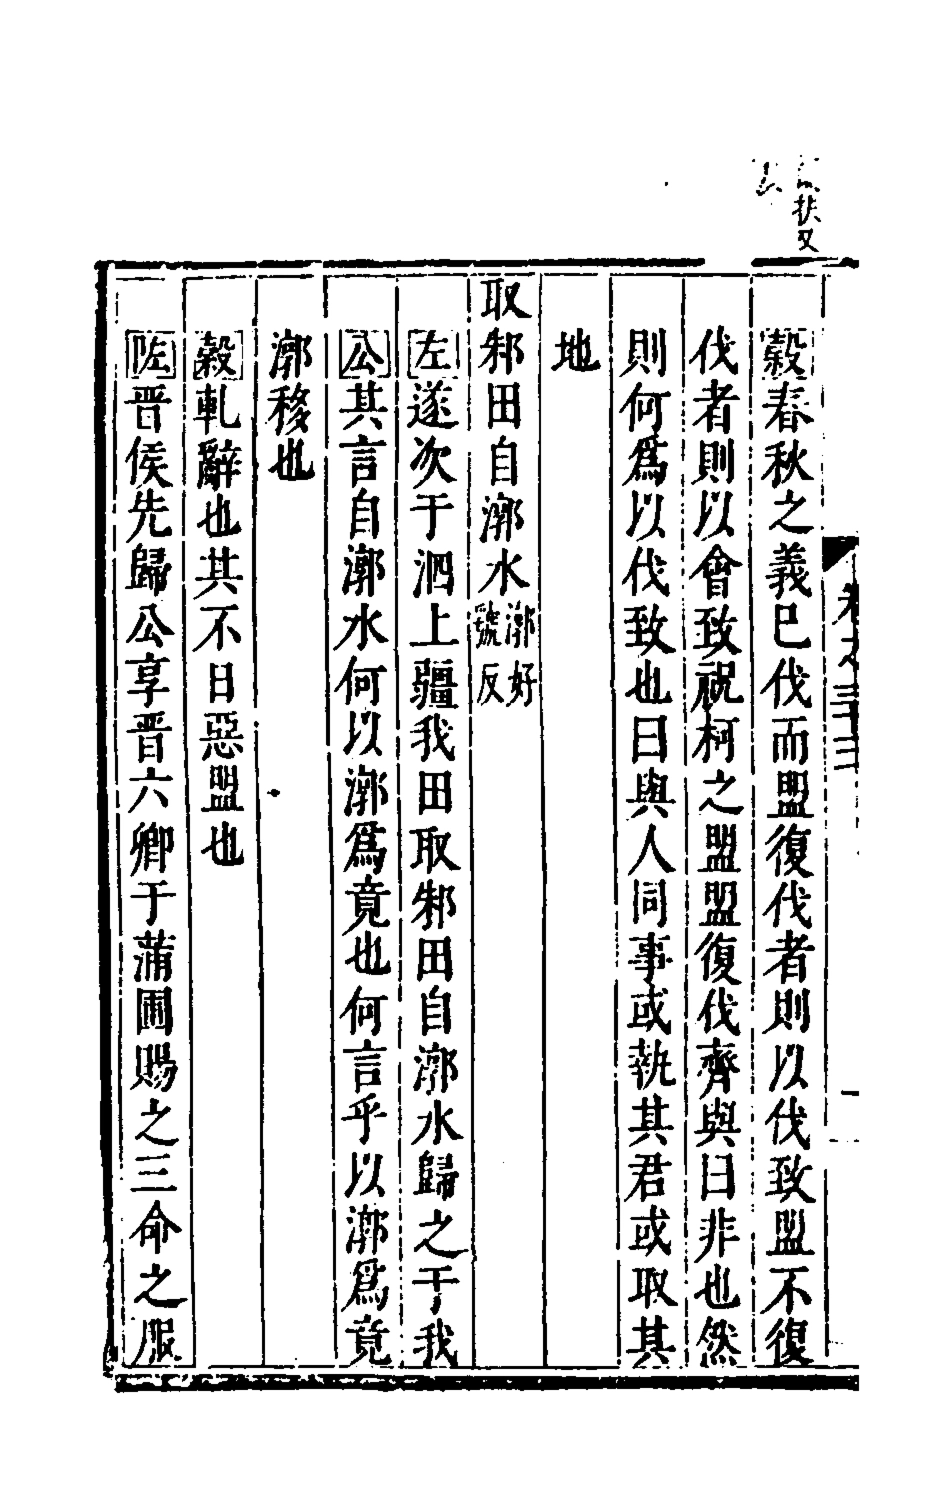 扶又
穀春秋之義巳伐而盟復伐者則以伐致盟不復
伐者則以會致祝柯之盟盟復伐齊與曰非也然
則何爲以伐致也曰與人同事或執其君或取其
地
取邾田自漷水漷好虢反
左遂次于泗上疆我田取邾田自漷水歸之于我
公其言自漷水何以漷爲竟也何言乎以漷爲竟
漷移也
穀軋辭也其不日惡盟也
左晋侯先歸公享晋六卿于蒲圃賜之三命之服